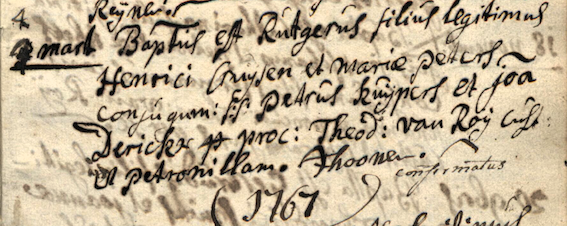 4
mart Baptus est Rutgerus filius legitimus
Henrici Cruysen et mariæ peters
conjugum: ss: petrus kuÿpers et joa
Derickx p proc: Theod: van Roÿ cust:
et petronillam. Thoonen.
confirmatus
(1767)